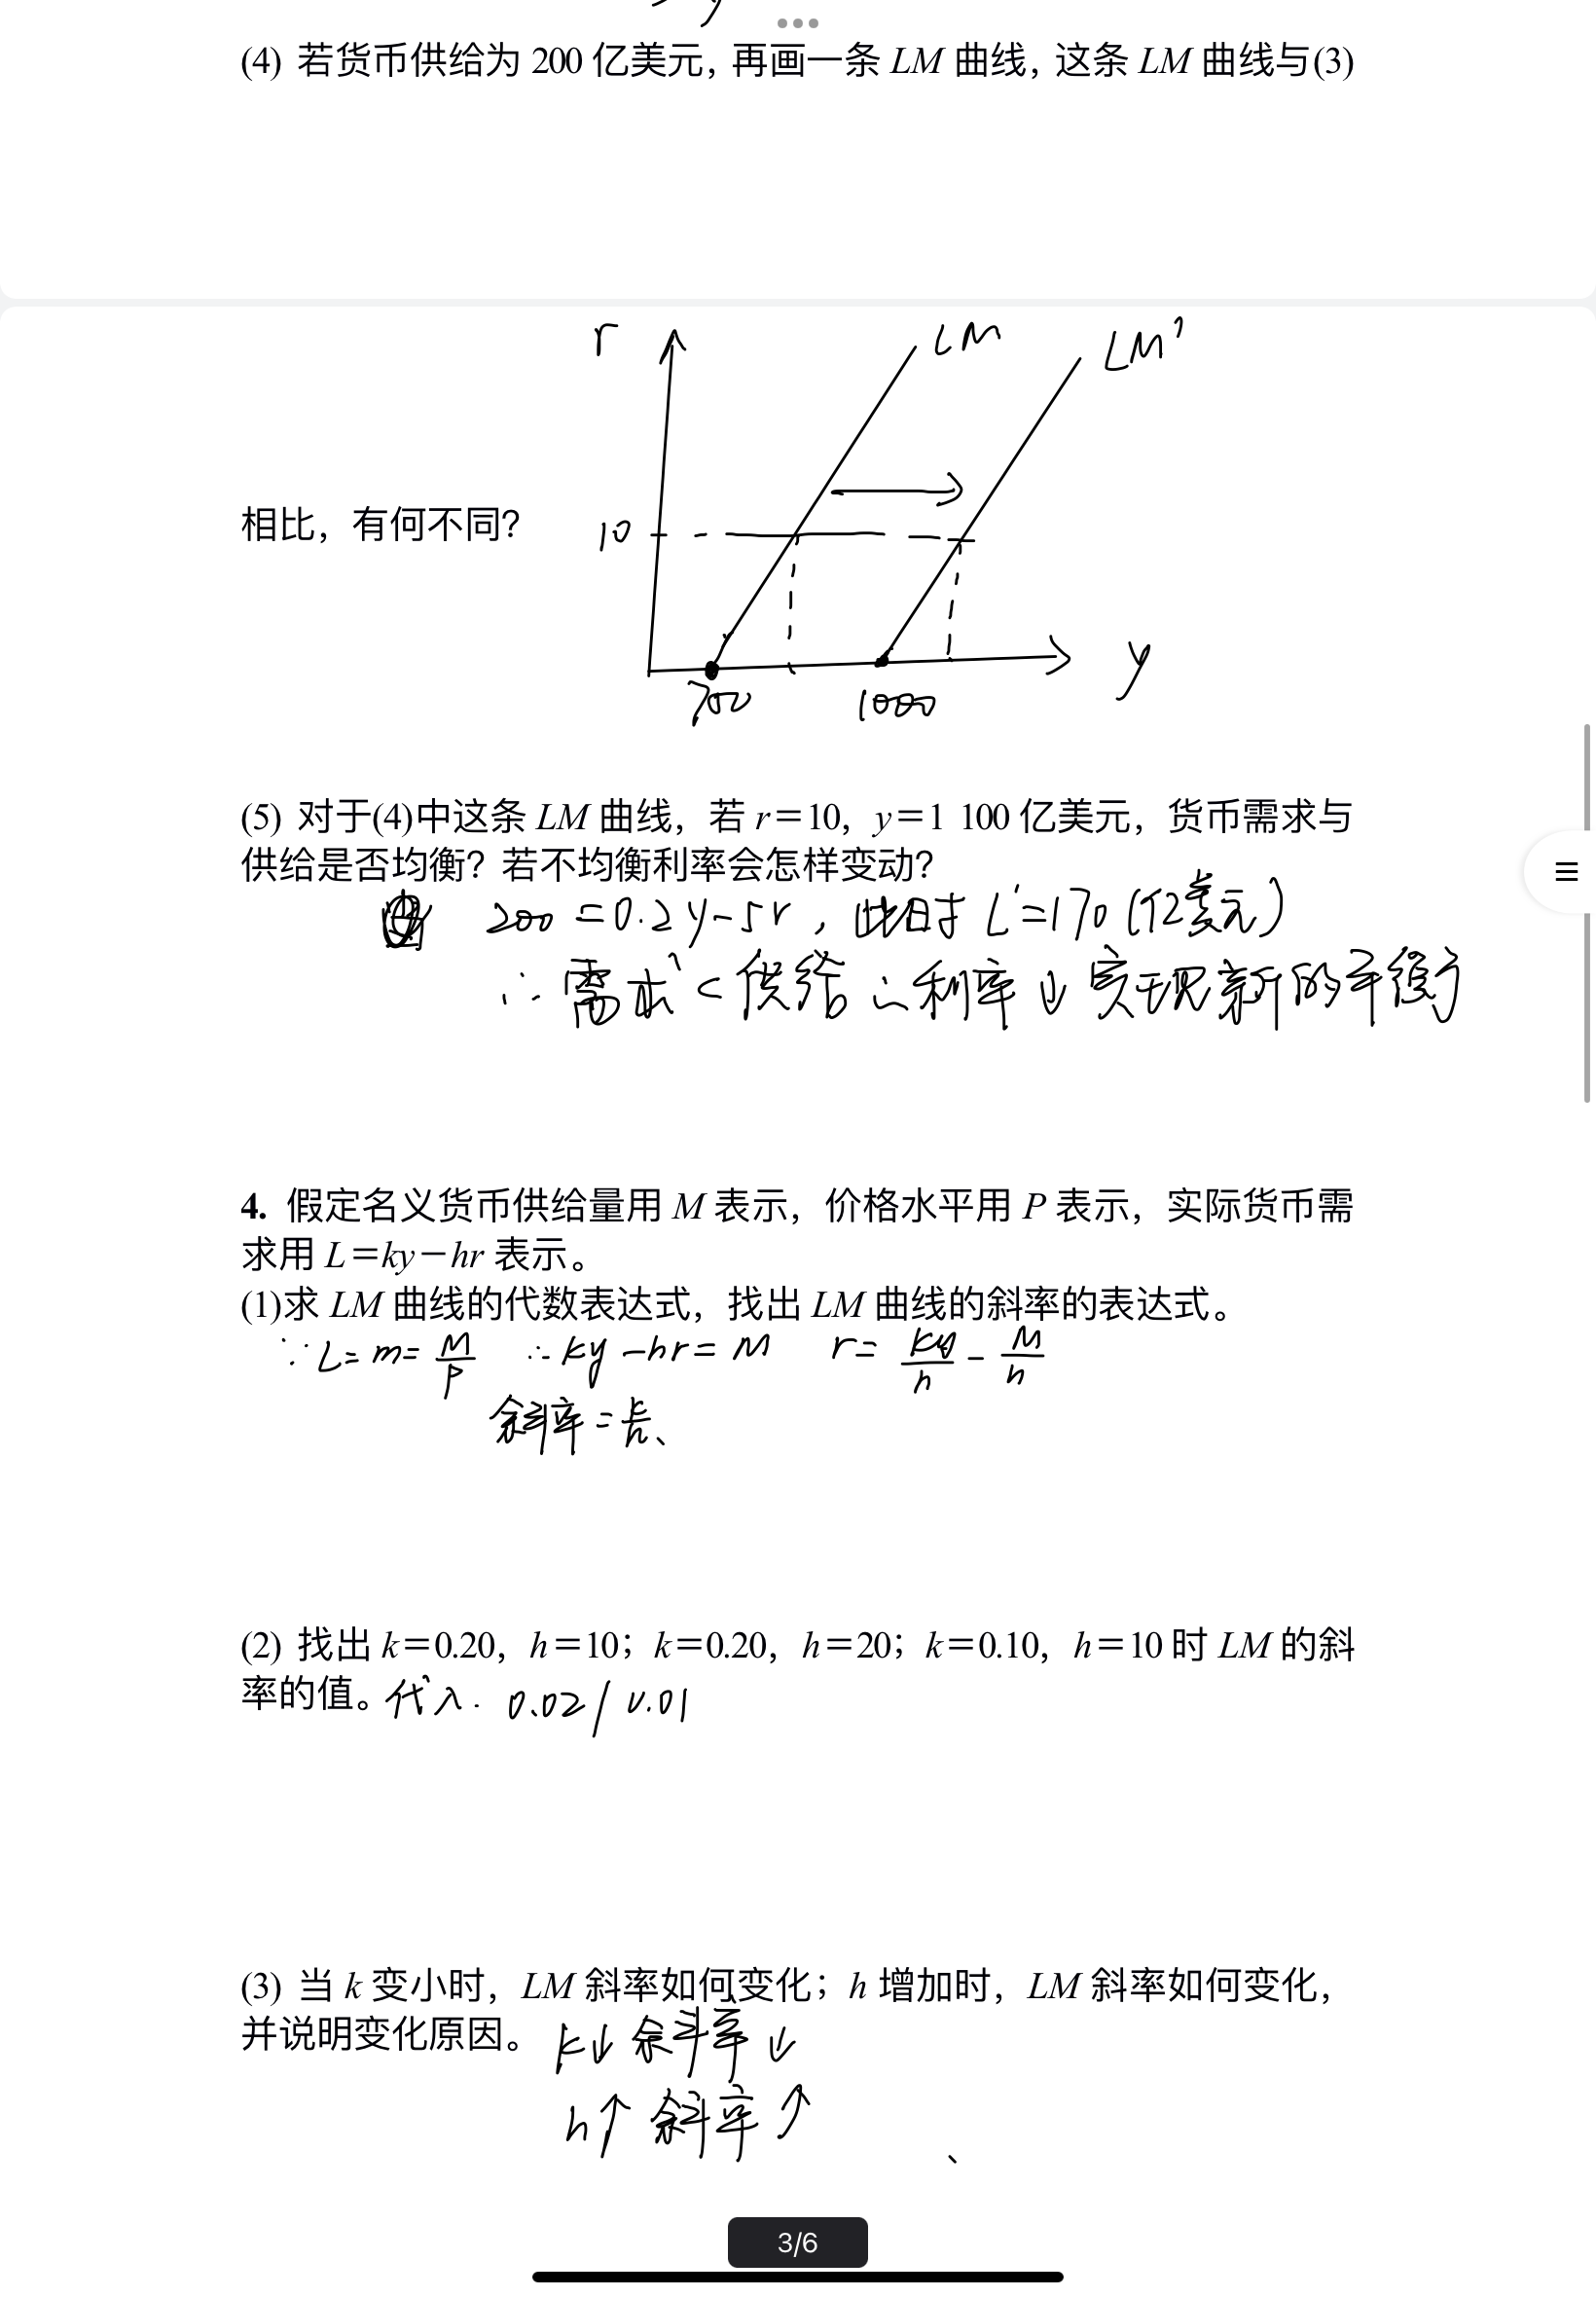 (4) 若货币供给为 200 亿美元，再画一条 LM 曲线，这条 LM 曲线与(3)
r
LM
LM'
相比，有何不同？
10
y
700
1000
(5) 对于(4)中这条 LM 曲线，若 r＝10，y＝1 100 亿美元，货币需求与
供给是否均衡？若不均衡利率会怎样变动？
200 = 0.2y - 5r，此时 L' = 170 (亿美元)
∴ 需求 < 供给 ∴ 利率 ↓ 实现新的平衡
4. 假定名义货币供给量用 M 表示，价格水平用 P 表示，实际货币需
求用 L＝ky－hr 表示。
(1)求 LM 曲线的代数表达式，找出 LM 曲线的斜率的表达式。
∵ L = m = M/P ∴ ky - hr = M r = ky/h - M/h
斜率 = k/h、
(2) 找出 k＝0.20，h＝10；k＝0.20，h＝20；k＝0.10，h＝10 时 LM 的斜
率的值。代入. 0.02 / 0.01
(3) 当 k 变小时，LM 斜率如何变化；h 增加时，LM 斜率如何变化，
并说明变化原因。 k↓ 斜率 ↓
h↑ 斜率 ↑
3/6